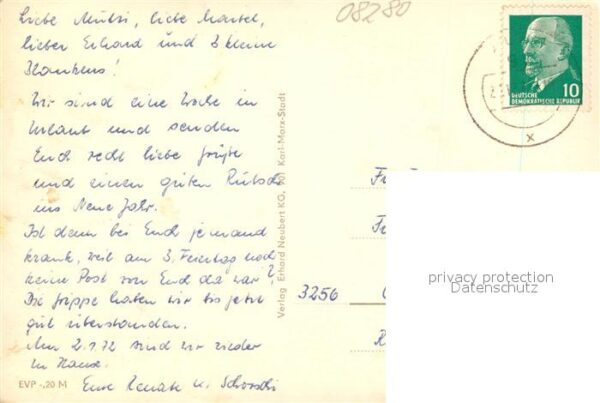 Liebe Mutsi, liebe Marbel,
lieber Erhard und 3 kleine
Blankens!
Wir sind eine Woche in
Urlaub und senden
Euch recht liebe Grüße
und einen guten Rutsch
ins Neue Jahr.
Ist denn bei Euch jemand
krank, weil am 3. Feiertag noch
keine Post von Euch da war?
Die Grippe haben wir bis jetzt
gut überstanden.
Am 2.1.72 sind wir wieder
in Hause.
Eure Renate u. Schorschi
EVP -,20 M
Verlag Erhard Neubert KG, 901 Karl-Marx-Stadt
08280
10
DEUTSCHE
DEMOKRATISCHE REPUBLIK
x
3256
privacy protection
Datenschutz